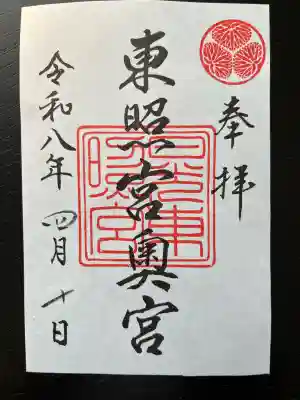 奉拝
東照宮奥宮
令和八年四月十日